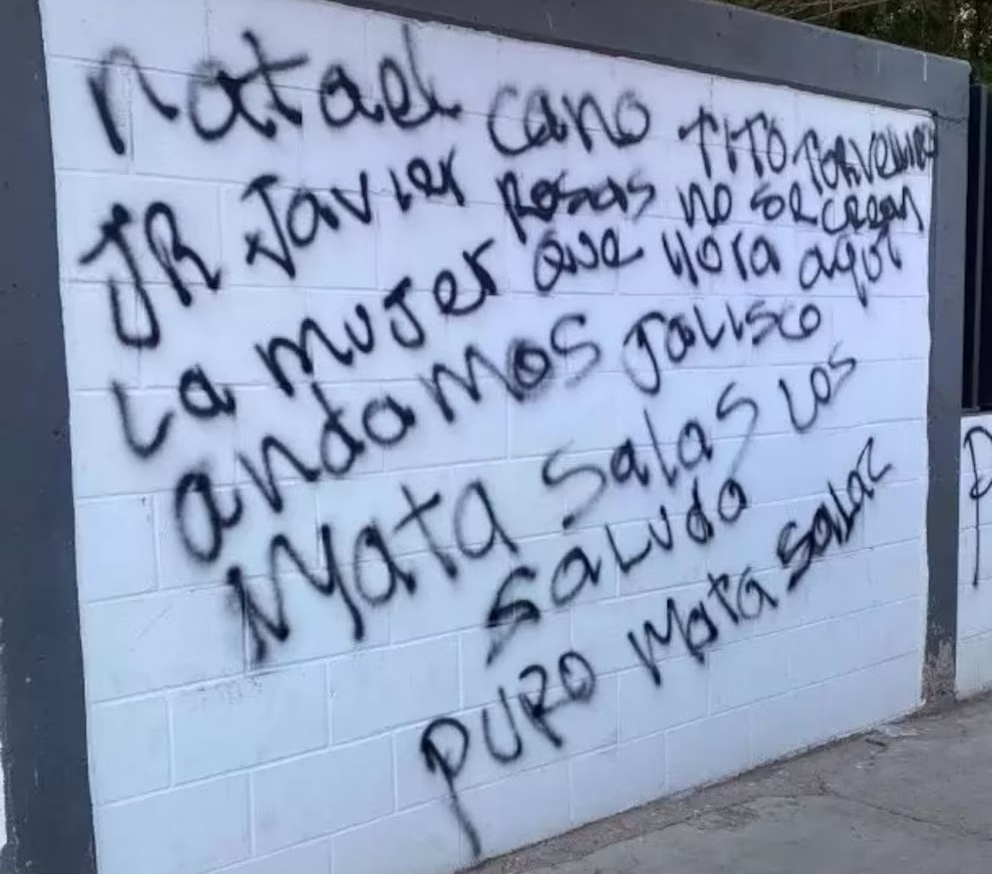 natael cano TITO TORVELLINO
JR Javier Rosas no se crean
La mujer que llora aqui
andamos Jalisco
Mata salas Los
saluda
PURO Mata salaz
P